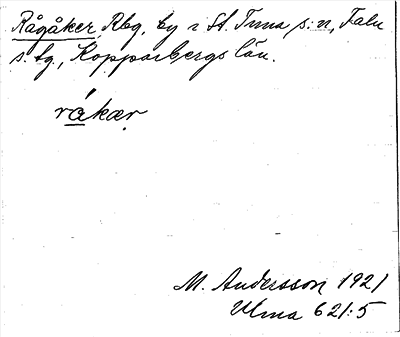 Rågåker Rbg, by i St. Tuna s:n, Falu
s. tg, Kopparbergs län.
rákær
M. Andersson 1921
Ulma 621:5